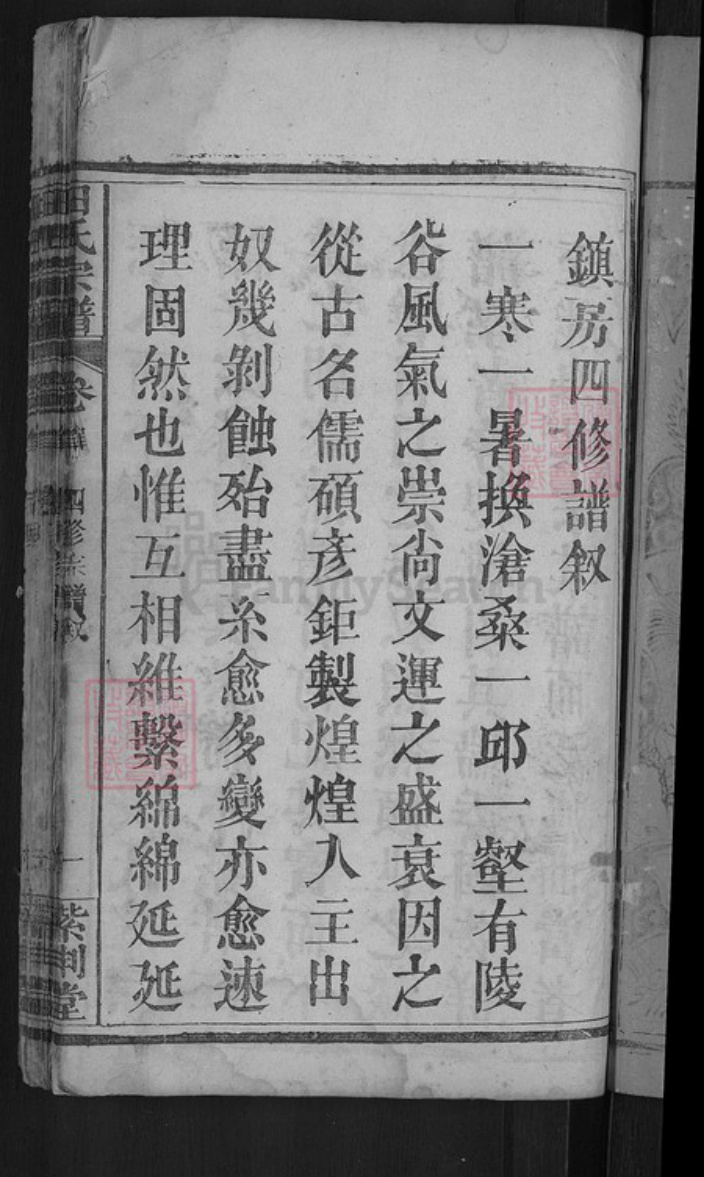 鎮房四修譜叙
一寒一暑換滄桑一邱一壑有陵
谷風氣之崇尚文運之盛衰因之
從古名儒碩彥鉅製煌煌入主出
奴幾剝蝕殆盡糸愈多變亦愈速
理固然也惟互相維繫綿綿延延
田氏宗譜
卷
四修宗譜叙
一
紫荆堂
FamilySearch